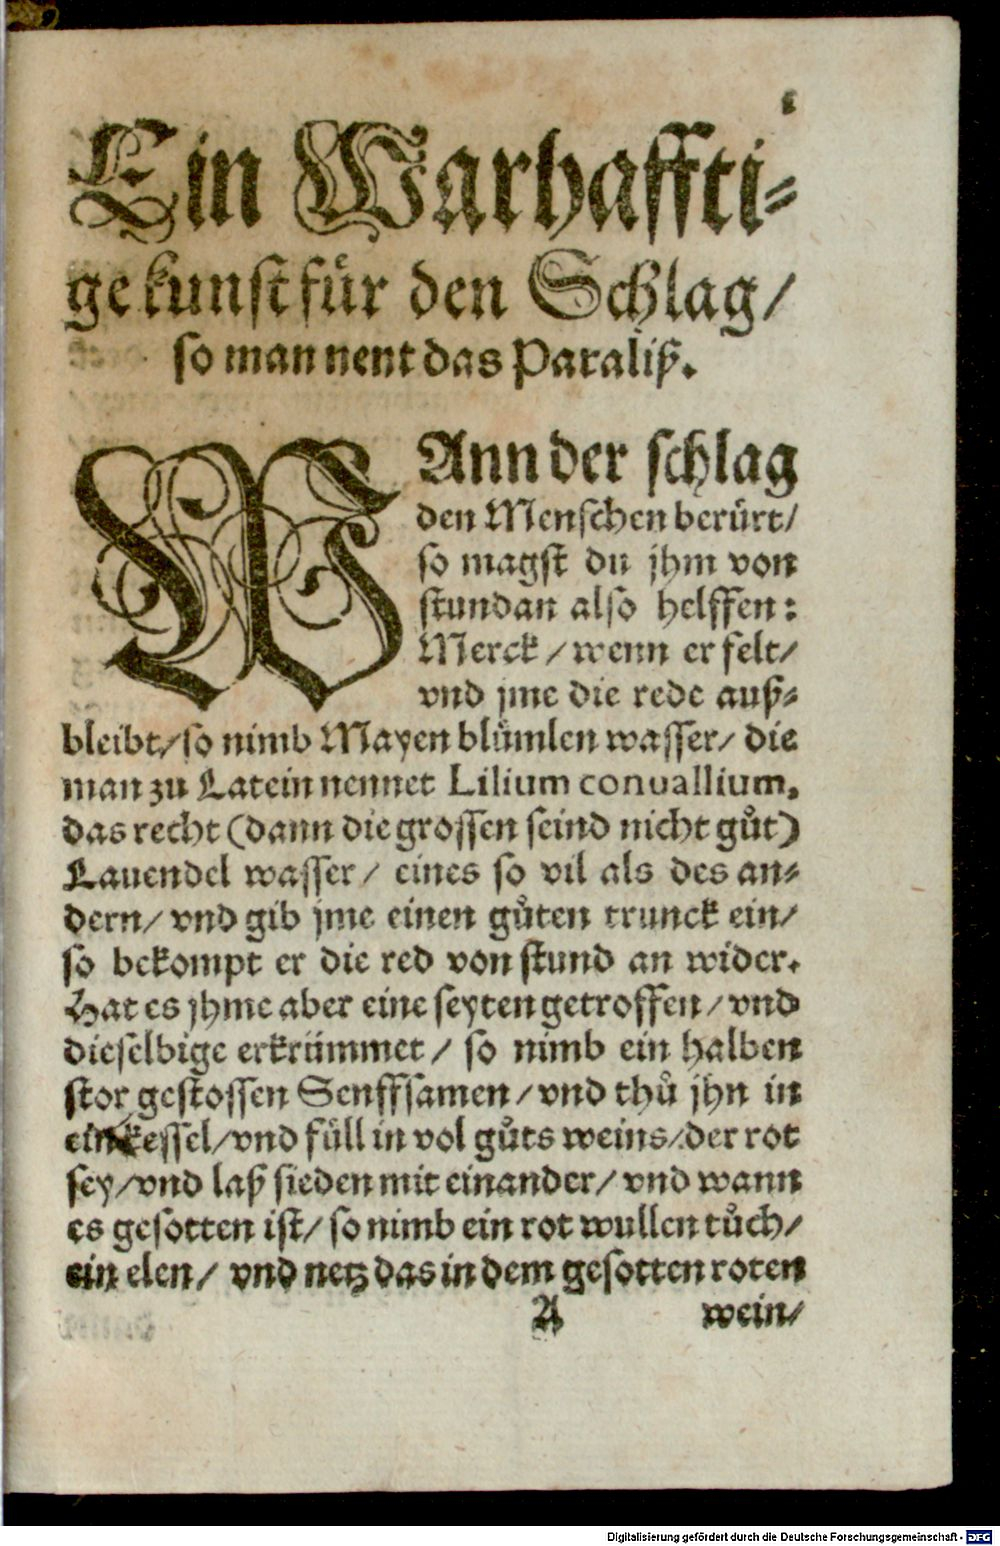 1
Ein Warhaffti-
ge kunst für den Schlag/
so man nent das Paraliß.
WAnn der schlag
den Menschen berürt/
so magst du jhm von
stundan also helffen:
Merck/ wenn er felt/
vnd jme die rede auß-
bleibt/ so nimb Mayen blůmlen wasser/ die
man zu Latein nennet Lilium conuallium.
das recht (dann die grossen seind nicht gůt)
Lauendel wasser/ eines so vil als des an-
dern/ vnd gib jme einen gůten trunck ein/
so bekompt er die red von stund an wider.
Hat es jhme aber eine seyten getroffen/ vnd
dieselbige erkrümmet/ so nimb ein halben
stor gestossen Senffsamen/ vnd thů jhn in
ein kessel/ vnd füll in vol gůts weins/ der rot
sey/ vnd laß sieden mit einander/ vnd wann
es gesotten ist/ so nimb ein rot wullen tůch/
ein elen/ vnd netz das in dem gesotten roten
A wein/
Digitalisierung gefördert durch die Deutsche Forschungsgemeinschaft - DFG